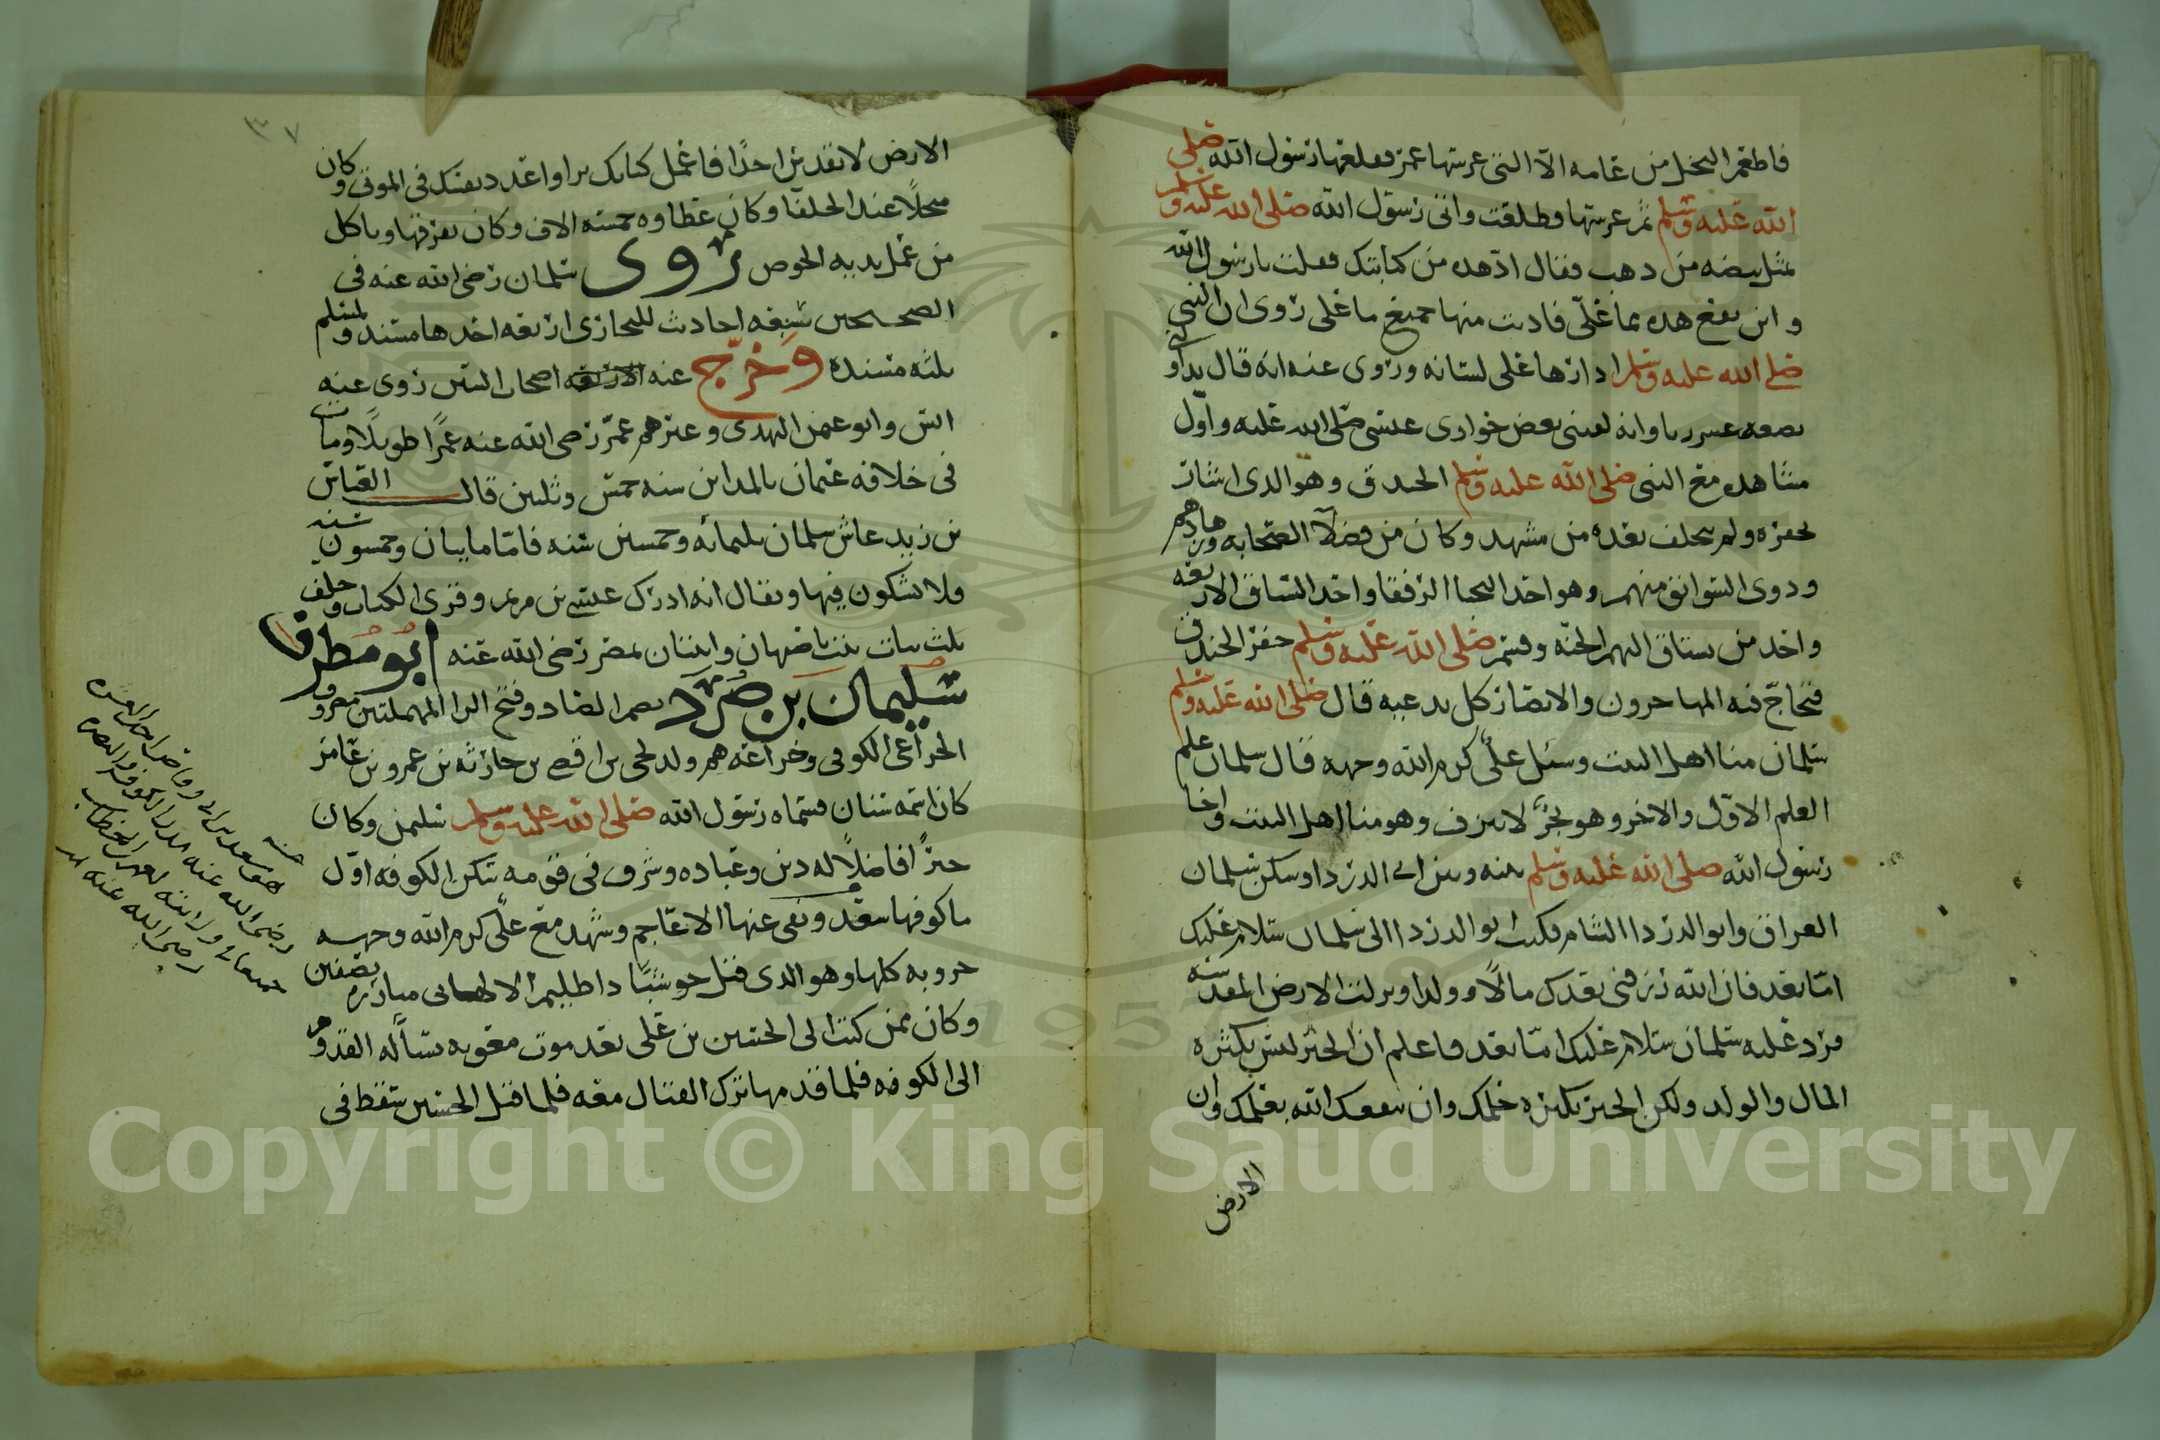 فاطعم النخل من عامه الا التي غرستها عمر فقلعها رسول الله صلى
الله عليه وسلم ثم غرستها وطلقت واتى رسول الله صلى الله عليه وسلم
بمثل بيضه من ذهب فقال اد هذه من كتابتك فقلت يا رسول الله
واين تقع هذه مما علي فاديت منها جميع ما علي روى ان النبي
صلى الله عليه وسلم ادارها على لسانه وروى عنه انه قال
بضعه عشر ربا وانه لقيني بعض حواري عيسى صلى الله عليه واول
مشاهده مع النبي صلى الله عليه وسلم الخندق وهو الذي اشار
بحفره ولم يتخلف بعده من مشهد وكان من فضلا الصحابه وزهادهم
وذوى السوابق منهم وهو احد النجبا الرفقا واحد السباق الاربعه
واحد من تستاق اليهم الجنه وقسم صلى الله عليه وسلم حفر الخندق
فتحاج فيه المهاجرون والانصار كل يدعيه قال صلى الله عليه وسلم
سلمان منا اهل البيت وسئل علي كرم الله وجهه فقال سلمان علم
العلم الاول والاخر وهو بحر لا ينزف وهو منا اهل البيت واخا
رسول الله صلى الله عليه وسلم بينه وبين ابي الدردا وسكن سلمان
العراق وابو الدردا الشام فكتب ابو الدردا الى سلمان سلام عليك
اما بعد فان الله رزقني بعدك مالا وولدا ونزلت الارض المقدسه
فرد عليه سلمان سلام عليك اما بعد فاعلم ان الخير ليس بكثره
المال والولد ولكن الخير بكثره حلمك وان ينفعك الله بعلمك وان
الارض
٣٧
الارض لا تقدس احدا فاعمل كتابك براوا عدد نفسك في الموتى وكان
مبجلا عند الخلفا وكان عطاوه خمسه الاف وكان يفرقها وياكل
من عمل يديه الخوص روى سلمان رضي الله عنه في
الصحيحين سبعه احاديث للبخاري اربعه احدها مسند ولمسلم
ثلثه مسنده وخرج عنه الاربعه اصحاب السنن روى عنه
انس وابو عثمن النهدي وغيرهم عمر رضي الله عنه عمرا طويلا ومات
في خلافه عثمان بالمداين سنه خمس وثلثين قال العباس
بن زيد عاش سلمان ثلثمائه وخمسين سنه فاما مايتان وخمسون سنه
فلا يشكون فيها ويقال انه ادرك عيسى بن مريم وقرى الكتاب وخلف
ثلث بنات بنت باصبهان وابنتان بمصر رضي الله عنه ابو مطرف
سليمان بن صرد بضم الصاد وفتح الرا المهملتين معروف
الخزاعي الكوفي وخزاعه هم ولد لحي بن قصي بن حارثه بن عمرو بن عامر
كان اسمه يسار فسماه رسول الله صلى الله عليه وسلم سليمن وكان
خيرا فاضلا له دين وعباده وشرف في قومه سكن الكوفه اول
ما كوفها سعد ونفى عنها الاعاجم وشهد مع علي كرم الله وجهه
حروبه كلها وهو الذي قتل حوشبا ذا ظليم الالهاني مبارزه بصفين
وكان ممن كتب الى الحسين بن علي بعد موت معويه يساله القدوم
الى الكوفه فلما قدمها ترك القتال معه فلما قتل الحسين سقط في
رضي الله عنه
Copyright © King Saud University
1957